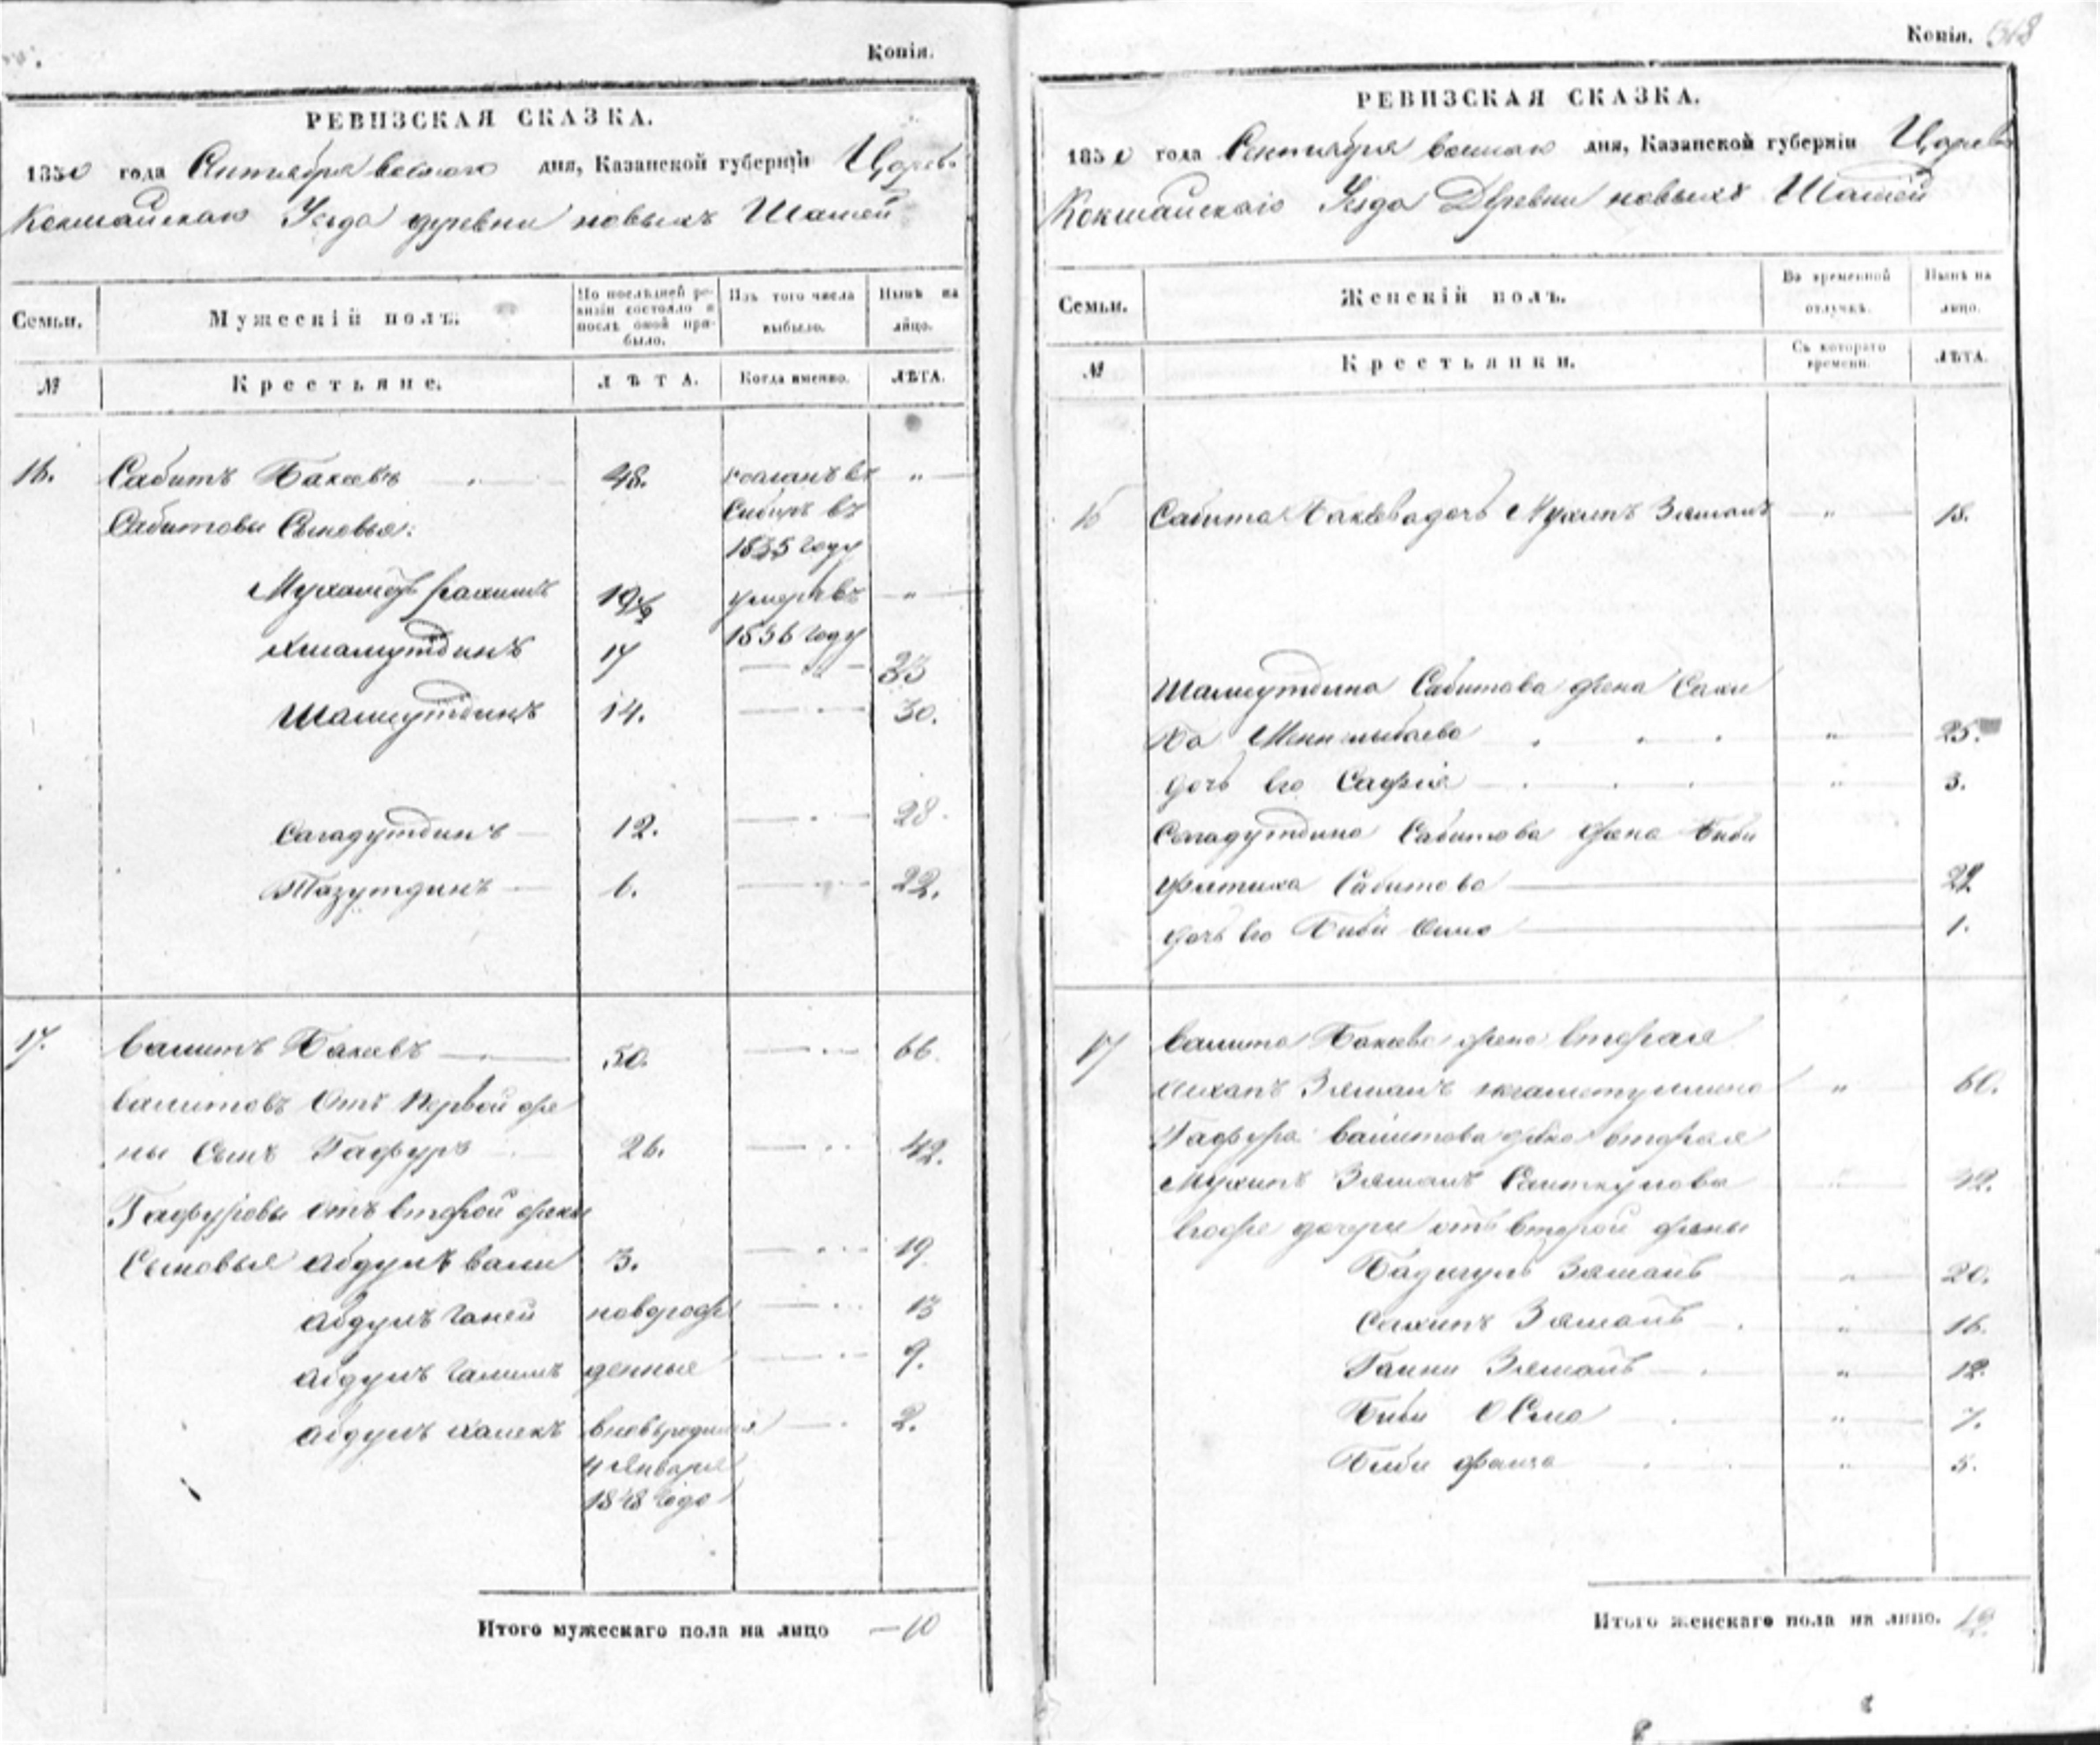 Копія.
РЕВИЗСКАЯ СКАЗКА.
1850 года Сентября дня, Казанской губерніи Царево
Кокшайскаго Уезда деревни новыхъ Шашей
Семьи.
Мужескій полъ.
По послѣдней ре-
визіи состояло и
послѣ оной при-
было.
Изъ того числа
выбыло.
Нынѣ на
лицо.
№
Крестьяне.
ЛѢТА.
Когда именно.
ЛѢТА.
16. Сабитъ Бакаевъ 48. сосланъ въ „
Сибирь въ
1835 году
Сабитовы Сыновья:
Мухаметъ Рахимъ 19½ умеръ въ „
1836 году
17 „ 33
Шамсутдинъ 14. „ 30.
Сагадутдинъ 12. „ 28.
Тазутдинъ 6. „ 22.
17. Валитъ Бакаевъ 50. „ 66.
Валитовъ Отъ Первой же
ны Сынъ Гафуръ 26. „ 42.
Гафуровы отъ второй жены
Сыновья Абдулъ вали 3. „ 19
Абдулъ Ганей новорож „ 13
Абдулъ Галимъ денные „ 9.
Абдулъ Халекъ вновь „ 2.
4 Января
1848 года
Итого мужескаго пола на лицо 10
Копія. 318
РЕВИЗСКАЯ СКАЗКА.
1850 года Сентября дня, Казанской губерніи Царево
Кокшайскаго Уезда Деревни новыхъ Шашей
Семьи.
Женскій полъ.
Во временной
отлучкѣ.
Нынѣ на
лицо.
№
Крестьянки.
Съ котораго
времени.
ЛѢТА.
16 Сабита Бакаева дочь Мухипъ Зямалъ „ 18.
Шамсутдина Сабитова жена Сахи
ба „ 25.
дочь Его Сафія „ 3.
Сагадутдина Сабитова жена Биби
Фатиха Сабитова 22
дочь Его Биби 1.
17 Валита Бакаева жена вторая
Зямалъ „ 60.
Гафура Валитова жена вторая
Мухипъ Зямалъ Саиткулова „ 42.
Егоже дочери отъ второй жены
Бадигулъ Зямалъ „ 20.
Сахипъ Зямалъ „ 16.
Гайни Зямалъ „ 12.
Биби „ 7.
Биби „ 5.
Итого женскаго пола на лицо. 12.